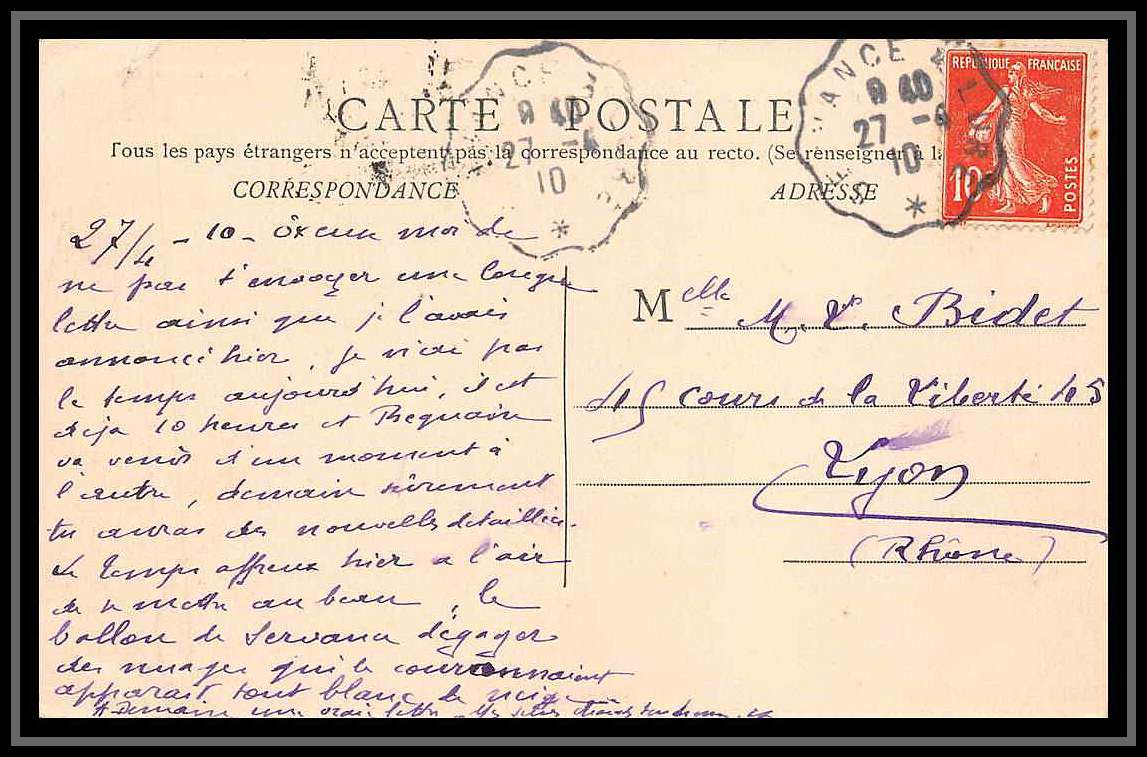 CARTE POSTALE
Tous les pays étrangers n'acceptent pas la correspondance au recto. (Se renseigner à la
CORRESPONDANCE
ADRESSE
9 40
27 -4
10
*
ANCE
9 40
27 -4
10
*
REPUBLIQUE FRANÇAISE
10
POSTES
27/4 - 10 - Excuse moi de
ne pas t'envoyer une longue
lettre ainsi que je l'avais
annoncé hier, je n'ai pas
le temps aujourd'hui, il est
déja 10 heures et
va venir d'un moment à
l'autre, demain sûrement
tu auras des nouvelles détaillées.
Le temps affreux hier a l'air
de se mettre au beau, le
ballon de Servance dégager
des nuages qui le couronnaient
apparait tout blanc de neige
Demain une vraie lettre
Melle M. L. Bidet
45 cours de la Liberté 45
Lyon
(Rhône)